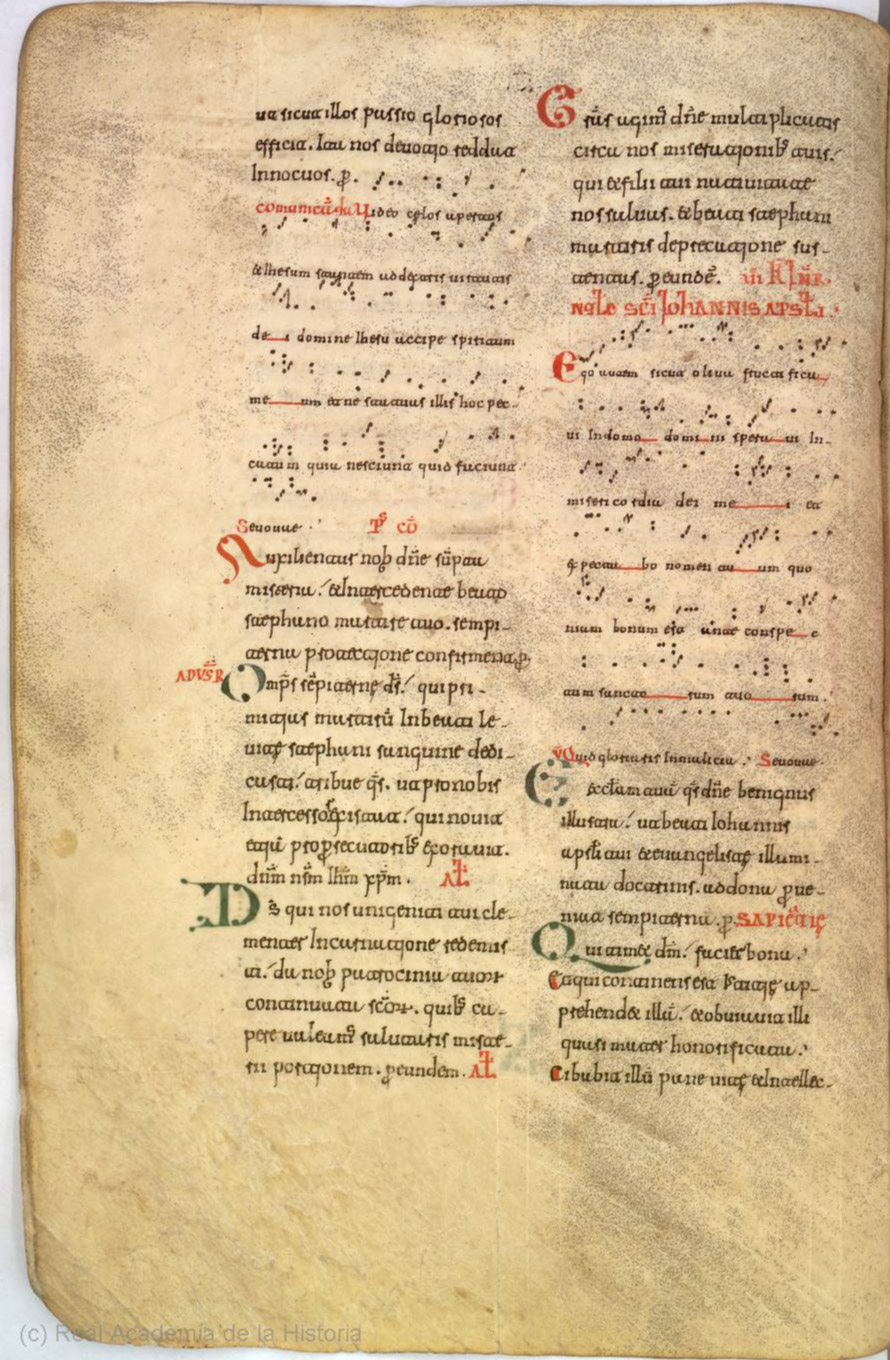 ut sicut illos passio gloriosos
efficit. Ita nos devotio reddat
Innocuos. p̱.
comunicā. Video cęlos apertos
& Ihesum stantem ad dextris virtutis
de i domine Ihesu accipe spiritum
me um et ne statuas illis hoc pec-
catum quia nesciunt quid faciunt.
Sevovae. Ps̄ cō
Auxilientur nob dn̄e sūpta
misteria. & Intercedente beato
stephano martire tuo. sempi-
terna protectione confirment. p̱.
AD VS̄R
Omp̄s sēpiterne ds̄. qui pri-
mitius martirū In beati le-
vitę stephani sanguine dedi-
casti. tribue qs̄. ut pro nobis
Intercessor existat. qui novit
etiā pro persecutoribs exoravit.
dn̄m nsm̄ Ihm̄ xpm̄. AL̄
Ds̄ qui nos unigeniti tui cle-
menter Incarnatione redemis
ti. da nob patrocinia tuor
continuata scōr. quibs ca-
pere valeams salutaris miste-
rii portionem. p eundem. AL̄
Esūs ugim̄ dn̄e multiplicatis
circa nos miserationibs tuis.
qui & filii tui nativitate
nos salvas. & beati stephani
martiris deprecatione sus-
tentas. p eundē. vi Kl IN̄R
NaLe SCI IohANNIS APSLI.
Ego autem sicut oliva fructifica
vi In domo domi ni sperav vi In-
misericordia dei me i et
expectabo nomen tu um quo
niam bonum est ante conspe c
tum sancto rum tuo rum.
V̄ Quid gloriaris In malicia. Sevovae.
Ecclam tuā qs̄ dn̄e benignus
illustra. ut beati Iohannis
apsli tui & euangelistę illumi-
nata doctrinis. ad dona perve-
niat sempiterna. p̱. SAPIĒTIĘ
Qui tim& dm̄. faci& bona.
Et qui continens est Iustitię ap-
prehend& illā. & obviavit illi
quasi mater honorificata.
Cibabit illū pane vitę & Intellec-
(c) Real Academia de la Historia